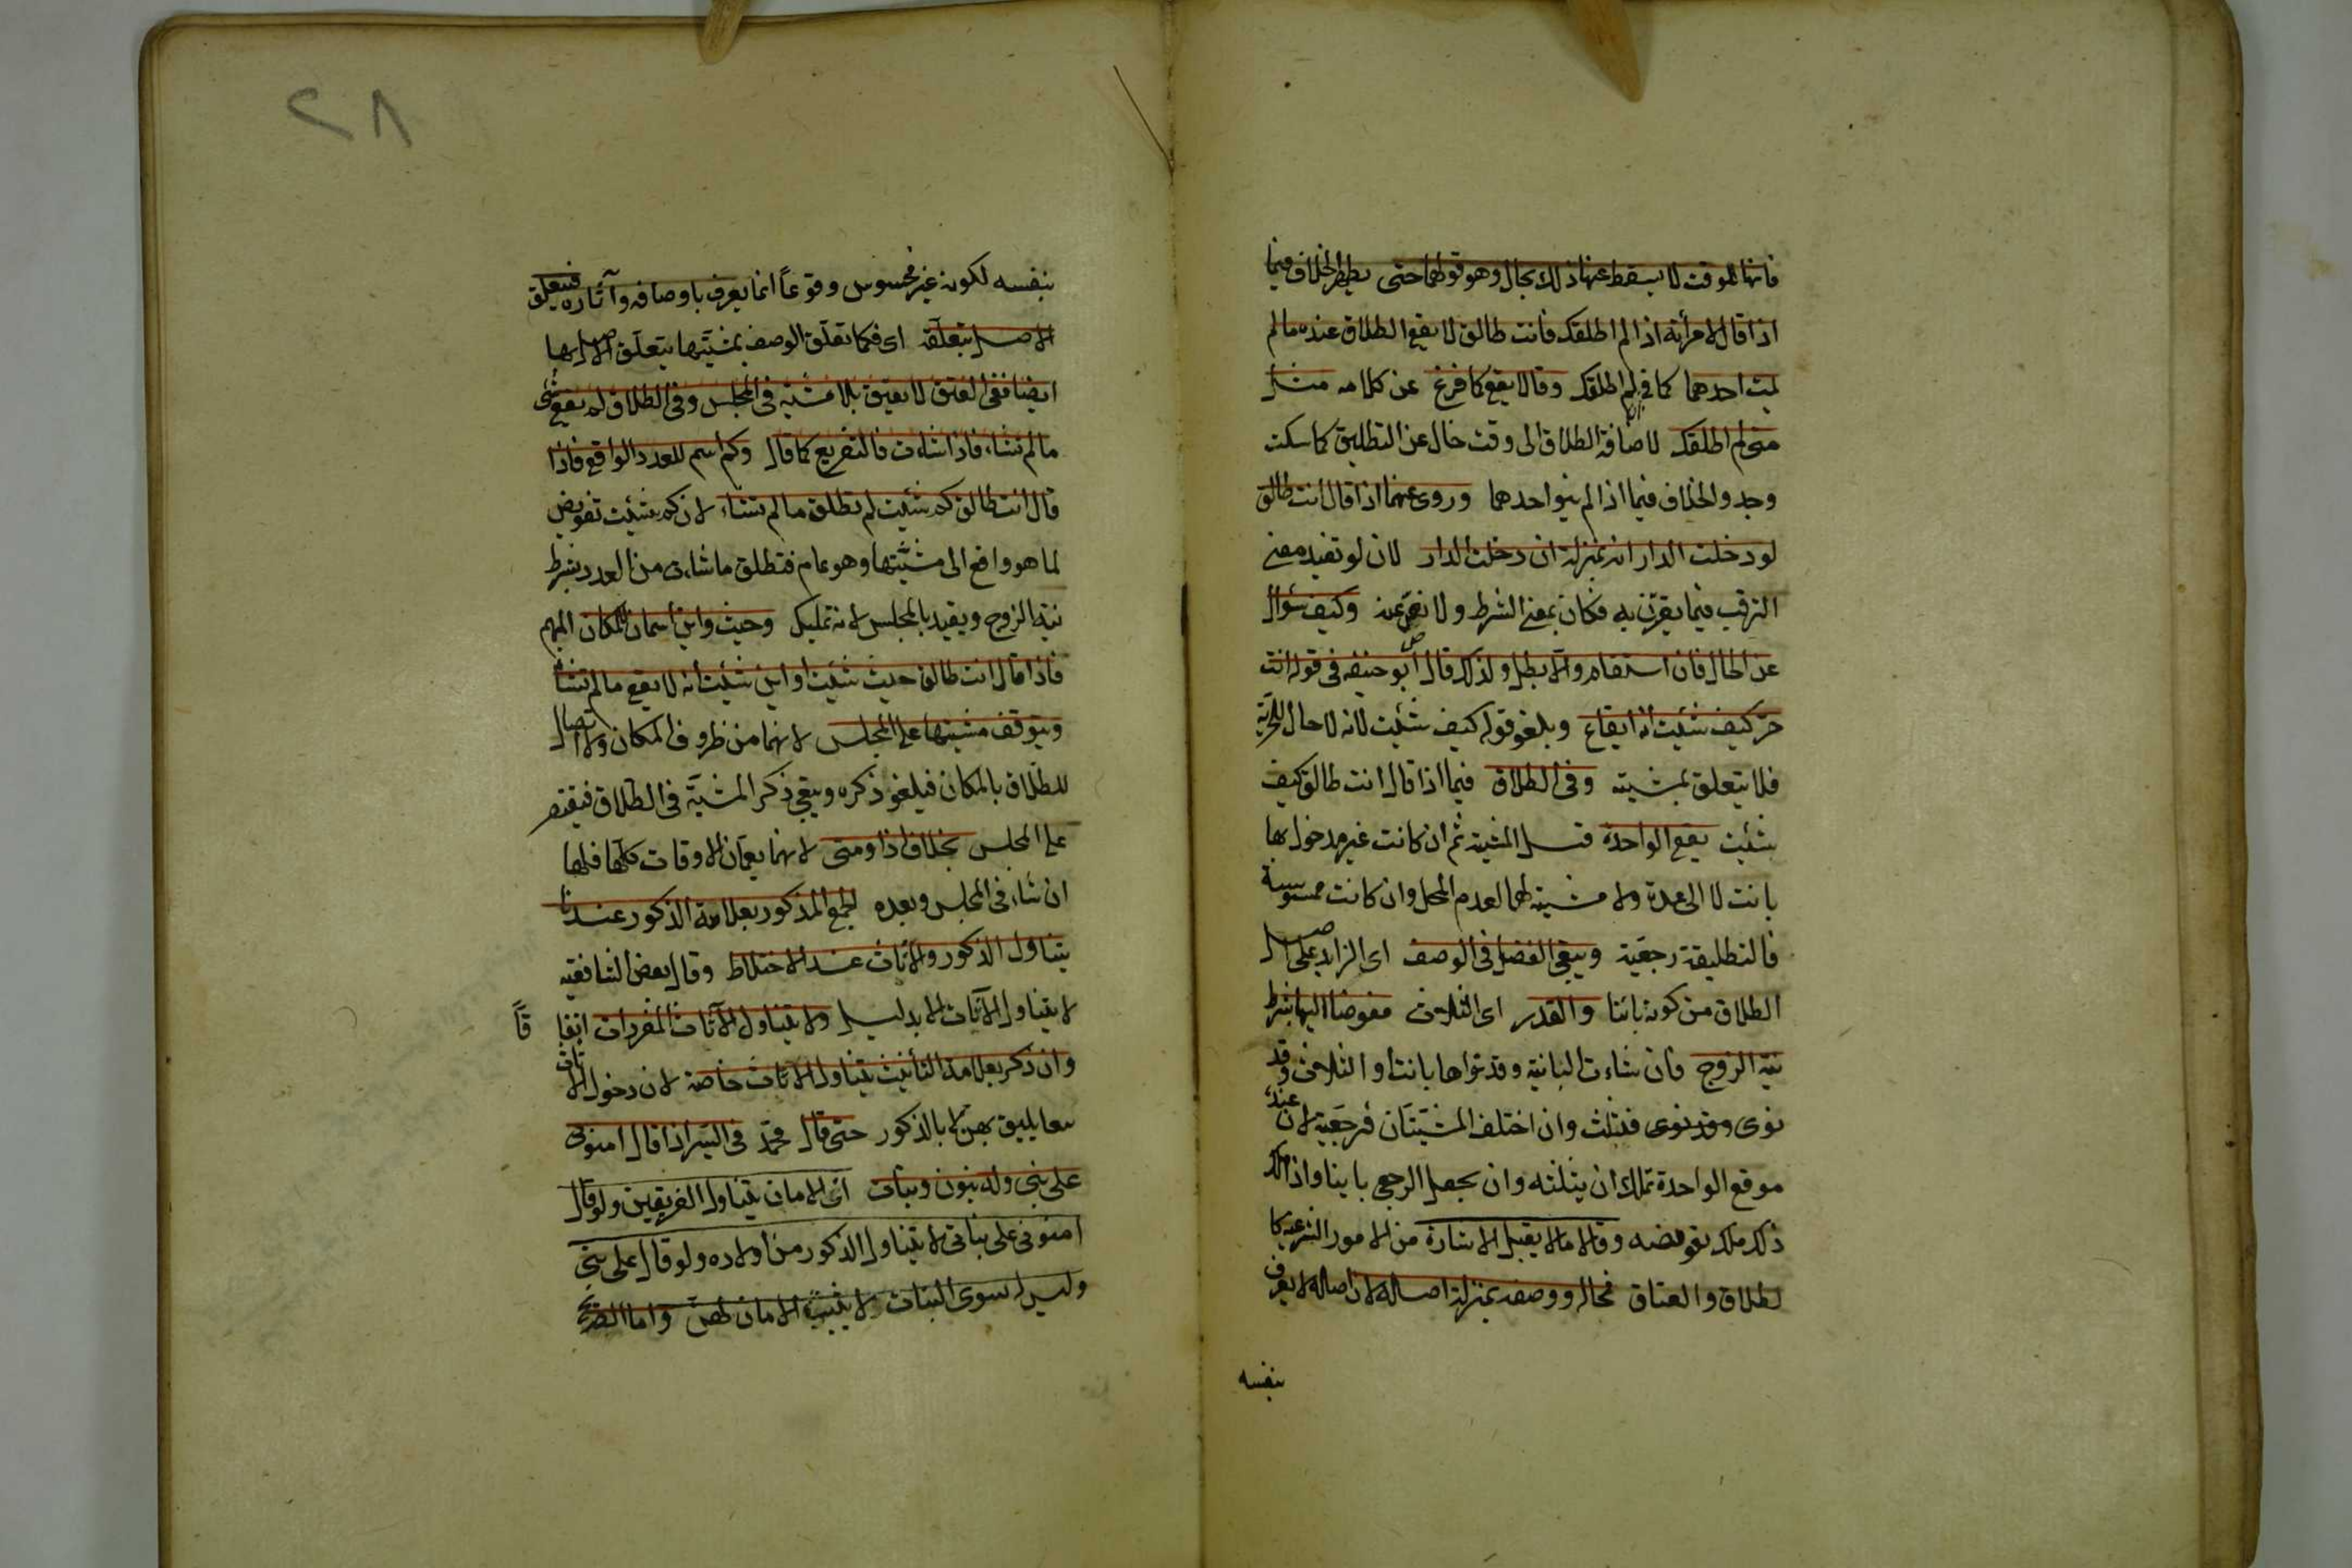 فانها للوقت لا يسقط عنها ذلك بحال وهو قولهما حتى يظهر الخلاف فيما
اذا قال لامرأته اذا لم اطلقك فانت طالق لا يقع الطلاق عنده ما لم
يمت احدهما كما في ان لم اطلقك وقالا يقع كما فرغ عن كلامه مثل
متى لم اطلقك لاضافة الطلاق الى وقت خال عن التطليق كما سكت
وجد والخلاف فيما اذا لم ينو احدهما وروى عنهما اذا قال انت طالق
لو دخلت الدار انه بمنزلة ان دخلت الدار لان لو تفيد معنى
الترقب فيما يقرن به فكان بمعنى الشرط ولا نص عنه وكيف سؤال
عن الحال فان استقام والا بطل ولذلك قال ابو حنيفه في قوله انت
حر كيف شئت انه ايقاع ويلغو قوله كيف شئت لانه لا حال للحرية
فلا يتعلق بمشيته وفى الطلاق فيما اذا قال انت طالق كيف
شئت يقع الواحدة قبل المشية ثم ان كانت غير مدخول بها
بانت لا الى عدة ولا مشية لها لعدم المحل وان كانت ممسوسة
فالتطليقة رجعية ويبقى الفضل فى الوصف اى الزايد على اصل
الطلاق من كونه باينا والقدر اى الثلاث مفوضا اليها بشرط
نية الزوج فان شاءت البانية وقد نواها بانت او الثلاث وقد
نوى وقد نوى فثلث وان اختلف المشيتان فرجعية لان عنده
موقع الواحدة تملك ان يثلثه وان يجعل الرجعي باينا واذا ملك
ذلك ملك تفويضه وقالا ما لا يقبل الاشارة من الامور الشرعية كا
لطلاق والعتاق فحاله ووصفه بمنزلة اصاله لان اصاله لا يعرف
بنفسه
٢٨
بنفسه لكونه غير محسوس وقوعاً انما يعرف باوصافه وآثاره فيتعلق
الاصل بتعلقه اى فكما تعلق الوصف بمشيتها يتعلق الاصل بها
ايضا ففى العتق لا يعتق بلا مشية فى المجلس وفى الطلاق لم يقع شئ
ما لم تشاء فاذا شاءت فالتفريع كما قال وكم اسم للعدد الواقع فاذا
قال انت طالق كم شئت لم تطلق ما لم تشاء لان كم شئت تفويض
لما هو واقع الى مشيتها وهو عام فتطلق ما شاءت من العدد بشرط
نية الزوج ويقيد بالمجلس لانه تمليك وحيث واين اسمان للمكان المبهم
فاذا قال انت طالق حيث شئت او اين شئت انه لا يقع ما لم تشأ
ويتوقف مشيتها على المجلس لانهما من ظروف المكان ولا اتصال
للطلاق بالمكان فيلغو ذكره ويبقى ذكر المشية فى الطلاق فيقتصر
على المجلس بخلاف اذا ومتى لانهما يعمان الاوقات كلها فلها
ان شاء فى المجلس وبعده الجمع المذكور بعلامة الذكور عندنا
يتناول الذكور والاناث عند الاختلاط وقال بعض الشافعيه
لا يتناول الاناث الا بدليل ولا يتناول الاناث المفردات اتفا قاً
وان ذكر بعلامة التأنيث يتناول الاناث خاصة لان دخول الاناث
معا يليق بهن لا بالذكور حتى قال محمد فى السير اذا قال امنونى
على بنى وله بنون وبنات ان الامان يتناول الفريقين ولو قال
امنونى على بناتى لا يتناول الذكور من اولاده ولو قال على بنى
وليس له سوى البنات لا يثبت الامان لهن واما الصريح